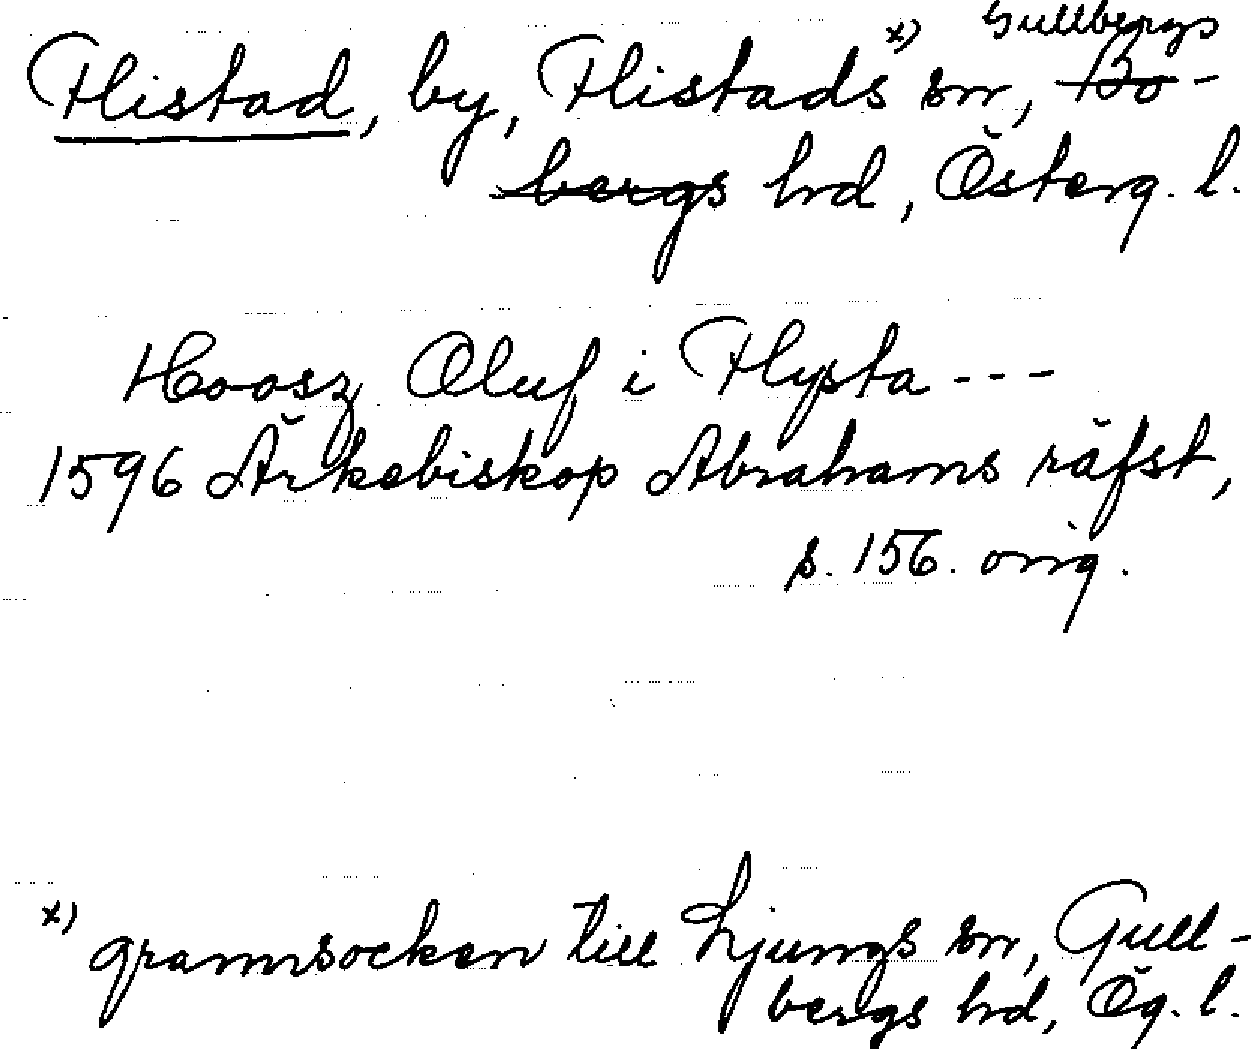 Gullbergs
Flistad, by, Flistads x) sn, Bo-
bergs hrd, Österg. l.
Hoosz Oluf i Flysta ---
1596 Ärkebiskop Abrahams räfst,
s. 156. orig.
x) grannsocken till Ljungs sn, Gull-
bergs hrd, Ög. l.